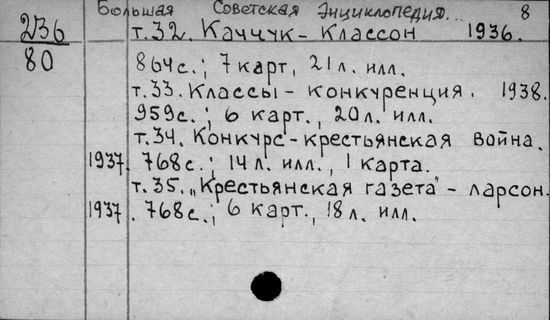 Большая Советская Энциклопедия... 8
236
80
т.32. Каучук - Классон 1936.
864с.; 7 карт, 21 л. илл.
т.33. Классы - конкуренция. 1938.
959с.; 6 карт., 20 л. илл.
т.34. Конкурс - крестьянская война.
1937. 768с.; 14 л. илл., 1 карта.
т.35. „Крестьянская газета" - Ларсон.
1937. 768с.; 6 карт., 18 л. илл.